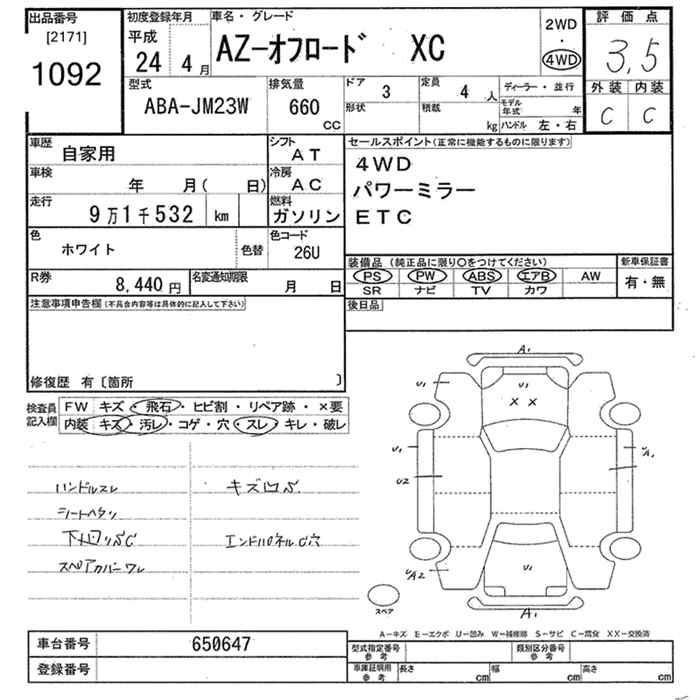 出品番号 初度登録年月 車名・グレード 2WD ・ 4WD 評価点
[2171] 平成
1092 24 4月 AZ-オフロード XC 3.5
外装 内装
C C
型式 排気量 ドア 定員 ディーラー・並行
ABA-JM23W 660 CC 3 4 人
形状 積載 kg モデル年式 年
ハンドル 左・右
車歴 自家用 シフト AT
車検 年 月( 日) 冷房 AC
走行 9万1千532 km 燃料 ガソリン
色 ホワイト 色替 色コード 26U
R券 8,440円 名変通知期限 月 日
セールスポイント(正常に機能するものに限ります)
4WD
パワーミラー
ETC
装備品(純正品に限り○をつけてください) 新車保証書
PS PW ABS エアB AW 有・無
SR ナビ TV カワ
後日品
注意事項申告欄(不具合内容等は具体的に記入して下さい)
修復歴 有〔箇所 〕
検査員記入欄 FW キズ・飛石・ヒビ割・リペア跡・×要
内装 キズ・汚レ・コゲ・穴・スレ・キレ・破レ
ハンドルスレ キズ凹
シートヘタリ
エンドパネルC穴
スペアカバーワレ
A1
U1 U1
× ×
U1 A1
U2
U1
A2
A1
スペア
A-キズ E-エクボ U-凹み W-補修跡 S-サビ C-腐食 XX-交換済
車台番号 650647
登録番号
型式指定番号 参考 類別区分番号 参考
車庫証明用 参考 長さ cm 幅 cm 高さ cm